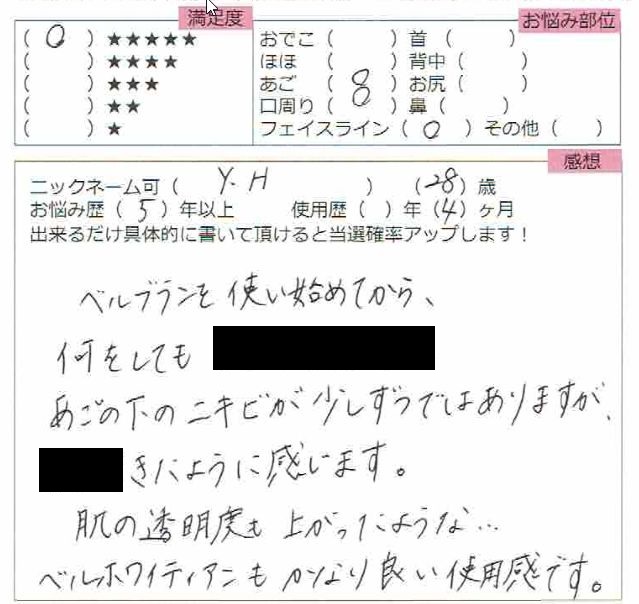 満足度
お悩み部位
( 0 ) ★★★★★
( ) ★★★★
( ) ★★★
( ) ★★
( ) ★
おでこ ( ) 首 ( )
ほほ ( ) 背中 ( )
あご ( 0 ) お尻 ( )
口周り ( 0 ) 鼻 ( )
フェイスライン ( 0 ) その他 ( )
感想
ニックネーム可 ( Y.H ) (28) 歳
お悩み歴 ( 5 ) 年以上 使用歴 ( ) 年 (4) ヶ月
出来るだけ具体的に書いて頂けると当選確率アップします!
ベルブランを使い始めてから、
何をしても
あごの下のニキビが少しずつではありますが、
きたように感じます。
肌の透明度も上がったような…
ベルホワイティアンもかなり良い使用感です。